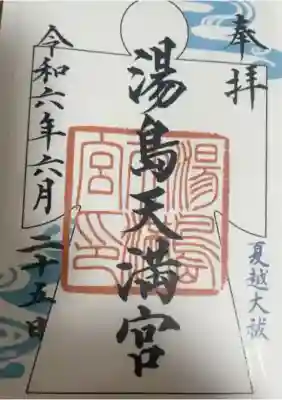 奉拝
夏越大祓
湯島天満宮
湯島天満宮印
令和六年六月二十五日